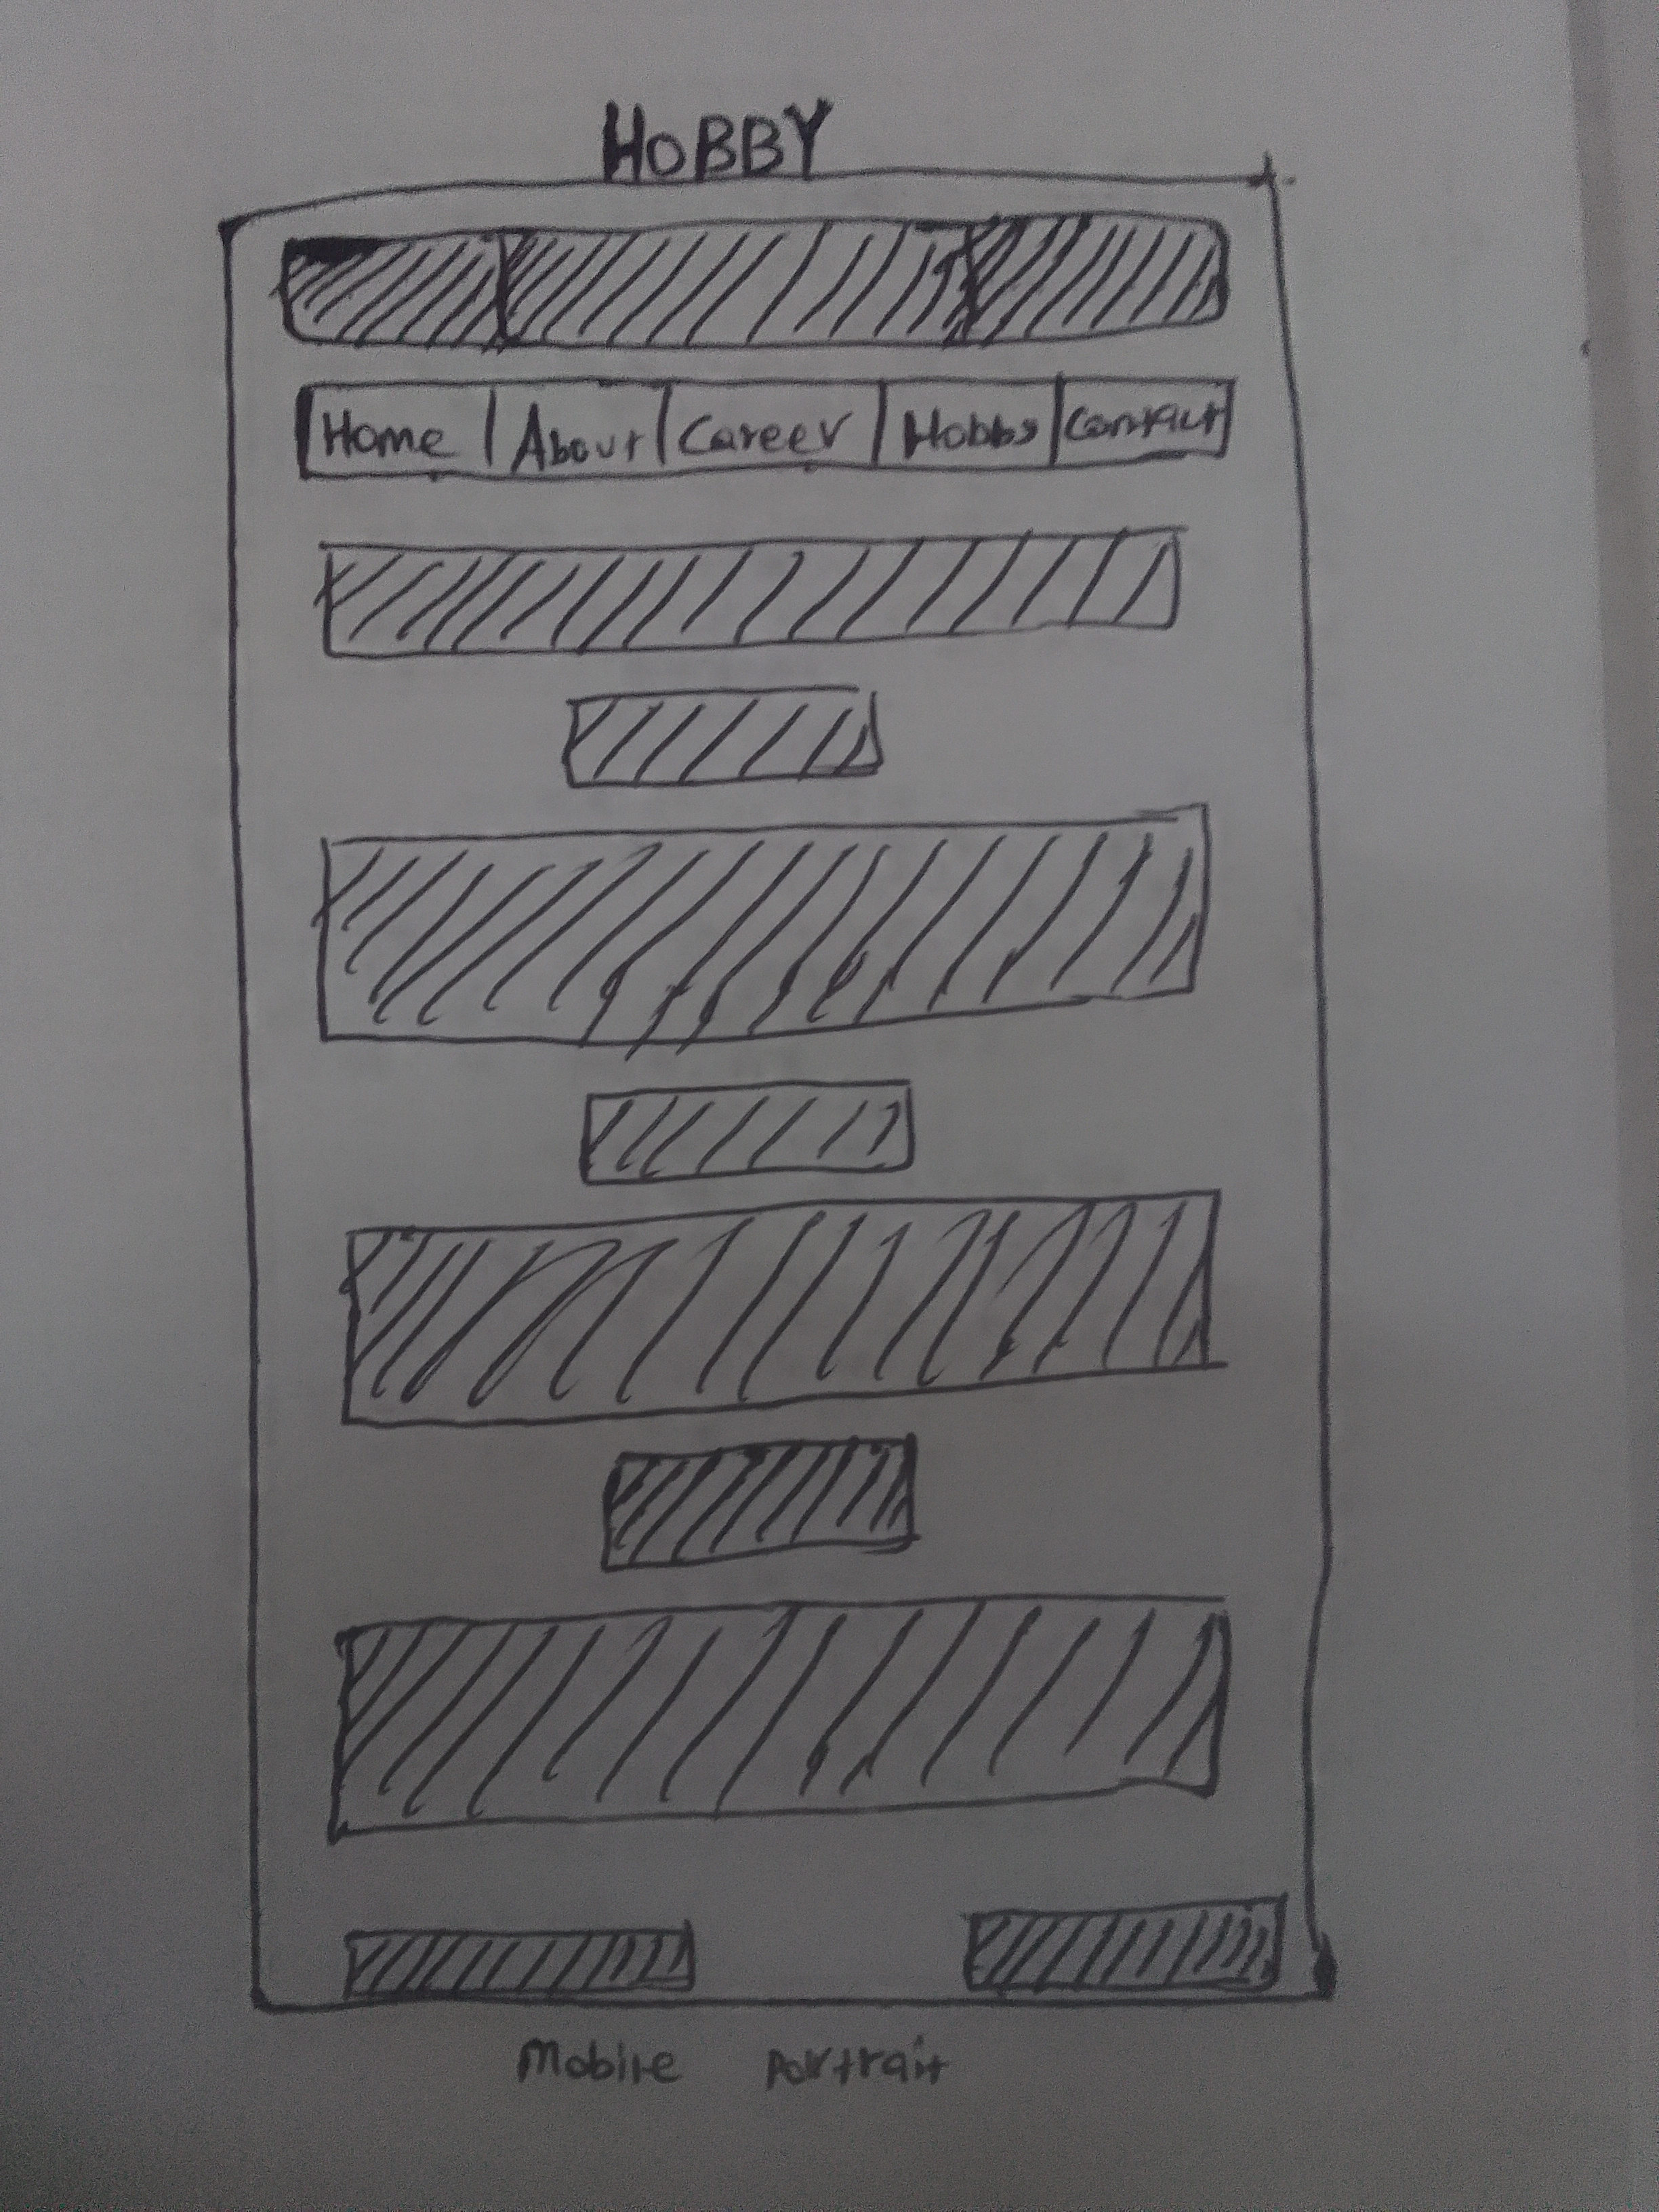 HOBBY
Home About Career Hobbs Contact
Mobile Portrait